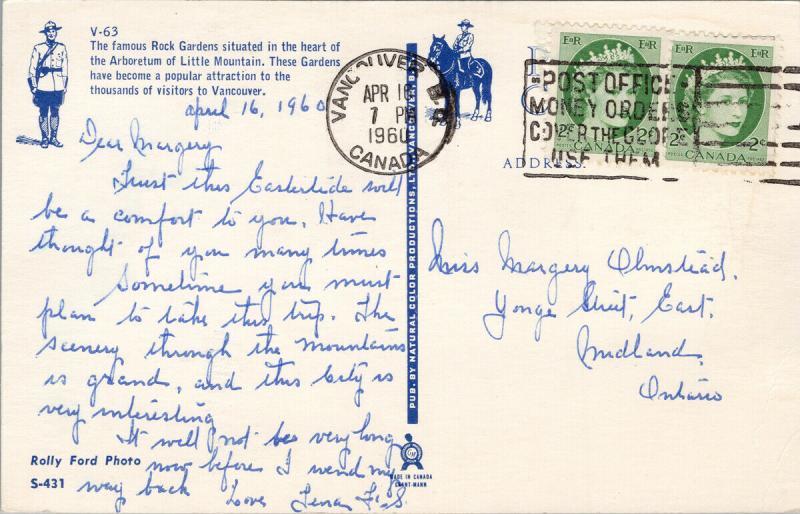 V-63
The famous Rock Gardens situated in the heart of
the Arboretum of Little Mountain. These Gardens
have become a popular attraction to the
thousands of visitors to Vancouver.
April 16, 1960
Dear Margery
Trust this Eastertide will
be a comfort to you. Have
thought of you many times
Sometime you must
plan to take this trip. The
scenery through the mountains
is grand, and this City is
very interesting
It will not be very long
now before I wend my
way back
Love
Rolly Ford Photo
S-431
PUB. BY NATURAL COLOR PRODUCTIONS, LTD., VANCOUVER, B.
MADE IN CANADA
GRANT-MANN
VANCOUVER B.C.
APR 16
7 PM
1960
CANADA
POST OFFICE
MONEY ORDERS
COVER THE GLOBE
USE THEM
EIIR EIIR
2c CANADA
EIIR EIIR
2c CANADA 2c
ADDRESS
Miss Margery Olmstead,
Yonge Street, East,
Midland,
Ontario